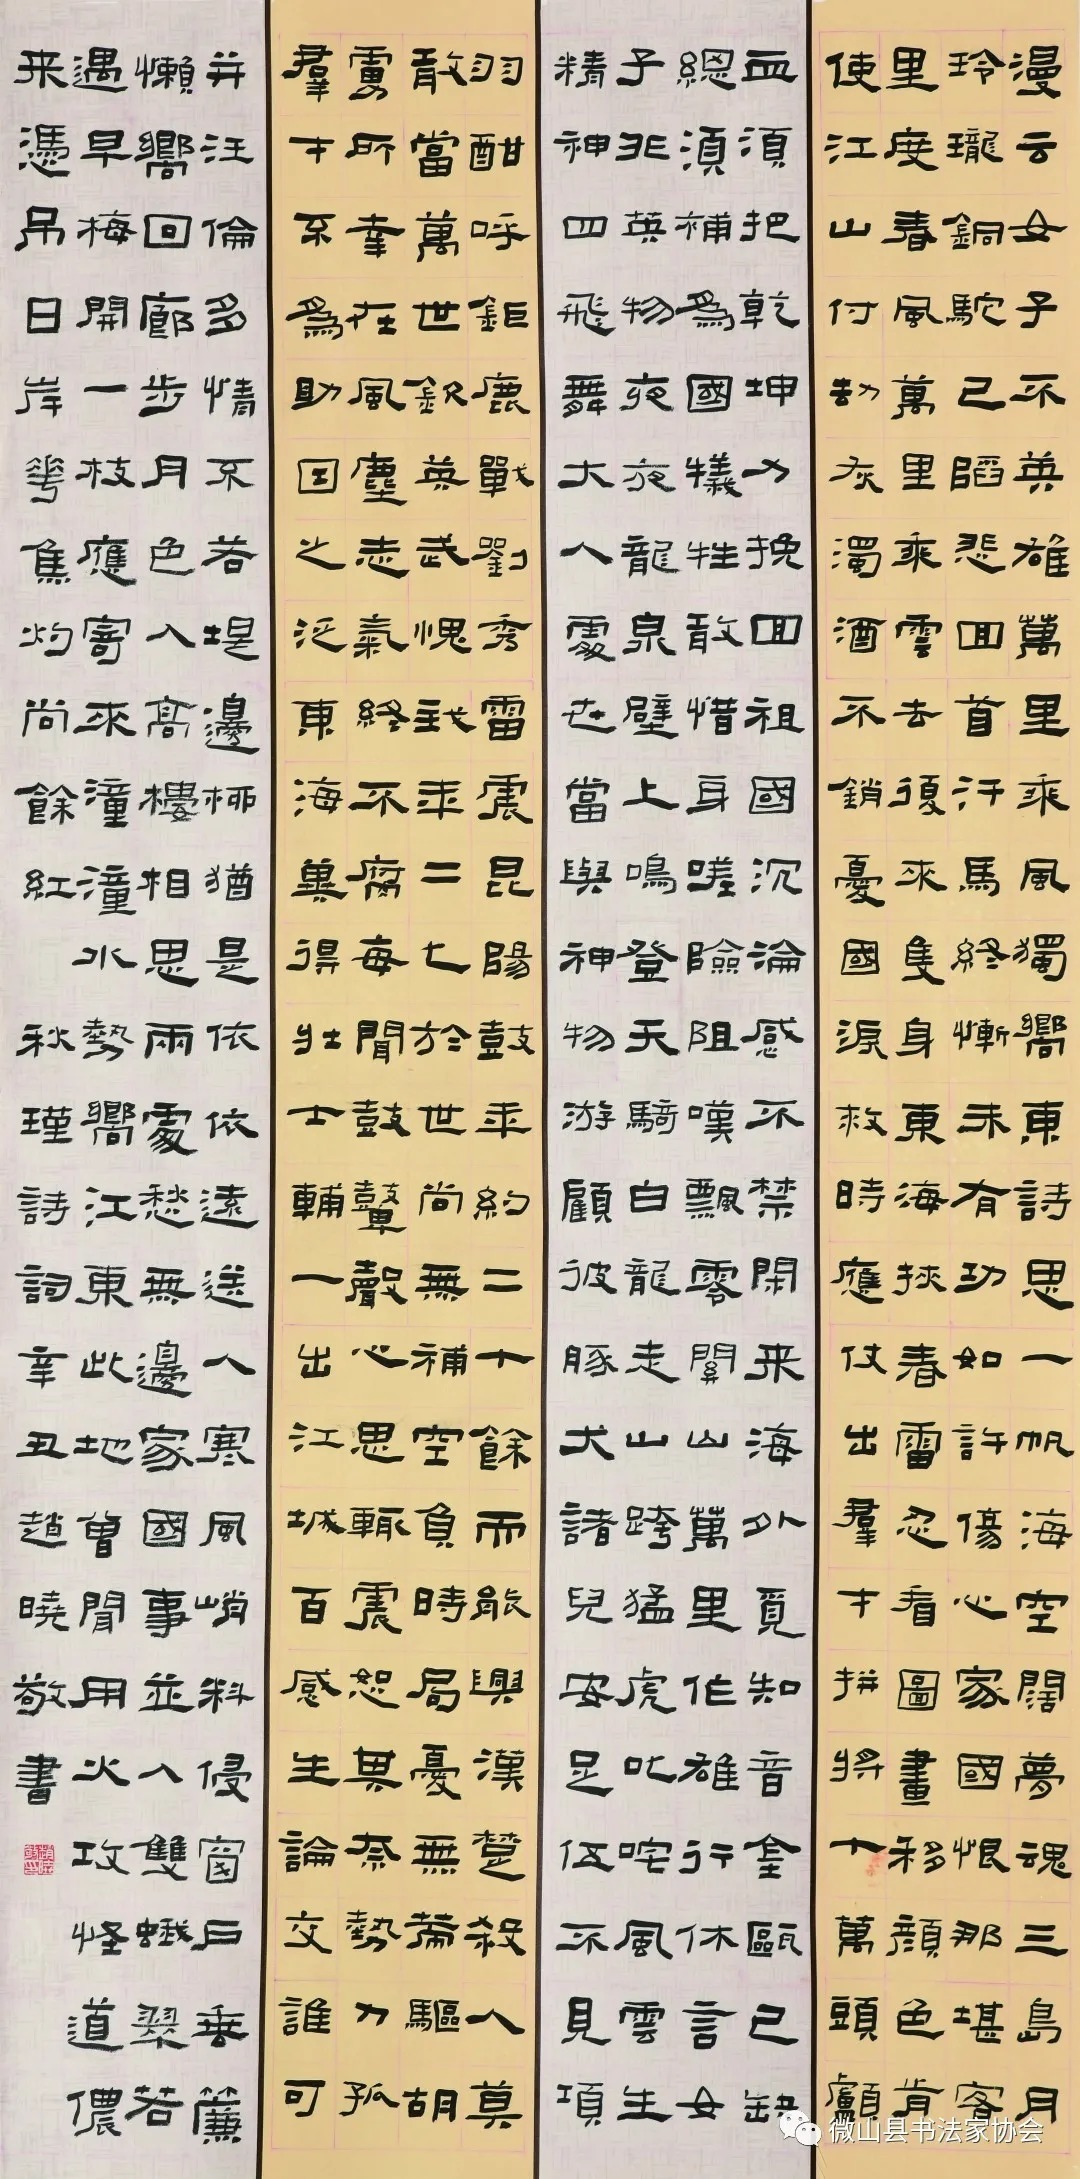 漫云女子不英雄萬里乘風獨嚮東詩思一帆海空闊夢魂三島月
玲瓏銅駝已陷悲回首汗馬終慚未有功如許傷心家國恨那堪客
里度春風萬里乘雲去復來隻身東海挾春雷忍看圖畫移顏色肯
使江山付劫灰濁酒不銷憂國淚救時應仗出羣才拼將十萬頭顱
血須把乾坤力挽回祖國沉淪感不禁閑来海外覓知音金甌已缺
總須補為國犧牲敢惜身嗟險阻嘆飄零關山萬里作雄行休言女
子非英物夜夜龍泉壁上鳴登天騎白龍走山跨猛虎叱咤風雲生
精神四飛舞大人處世當與神物游顧彼豚犬諸兒安足伍不見項
羽酣呼鉅鹿戰劉秀雷震昆陽鼓年約二十餘而能興漢楚殺人莫
敢當萬世欽英武愧我年二七於世尚無補空負時局憂無策驅胡
虜所幸在風塵志氣終不腐每聞鼓鼙聲心思輒震怒其奈勢力孤
羣才不為助因之泛東海冀得壯士輔一出江城百感生論交誰可
并汪倫多情不若堤邊柳猶是依依遠送人寒風峭料侵窗戶垂簾
懶嚮回廊步月色入高樓相思兩處愁無邊家國事並入雙蛾翠若
遇早梅開一枝應寄來潼潼水勢嚮江東此地曾聞用火攻怪道儂
来憑吊日岸花焦灼尚餘紅 秋瑾詩詞辛丑趙曉敬書
微山县书法家协会